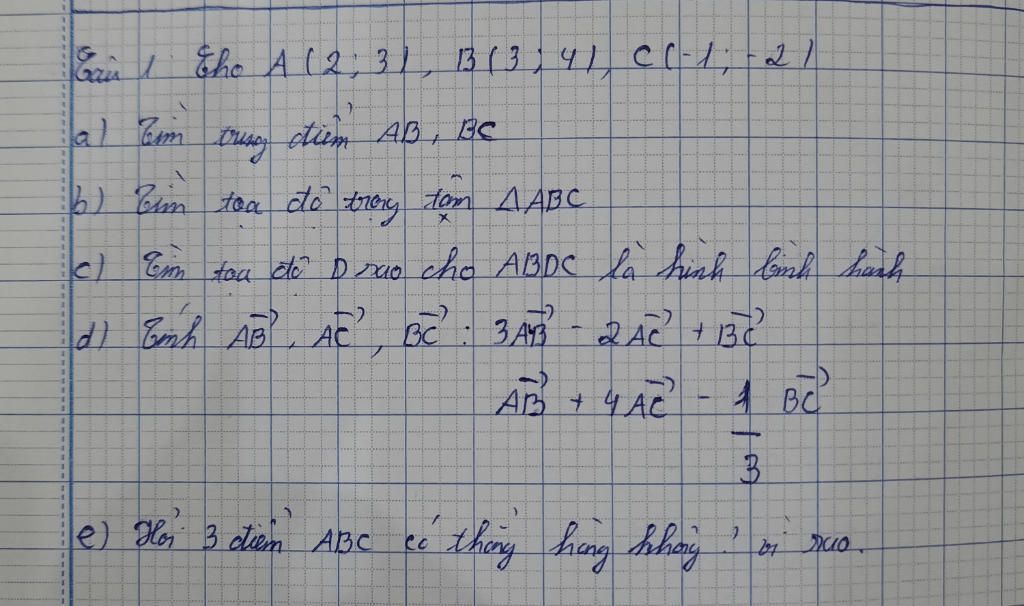 Câu 1. Cho A(2; 3), B(3; 4), C(-1; -2)
a) Tìm trung điểm AB, BC
b) Tìm tọa độ trọng tâm ΔABC
c) Tìm tọa độ D sao cho ABDC là hình bình hành
d) Tính AB⃗, AC⃗, BC⃗ : 3AB⃗ - 2AC⃗ + BC⃗
AB⃗ + 4AC⃗ - 1/3 BC⃗
e) Hỏi 3 điểm ABC có thẳng hàng không? vì sao.